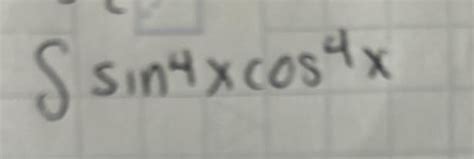 ∫ sin⁴xcos⁴x